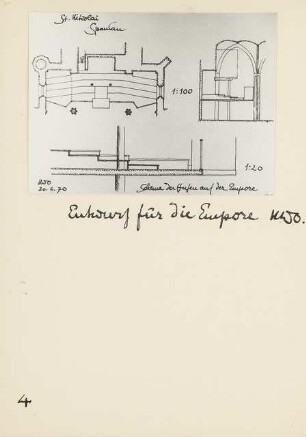 St. Nikolai
Spandau
1:100
1:20
20.6.70
Schema der Stufen auf der Empore
Entwurf für die Empore
4